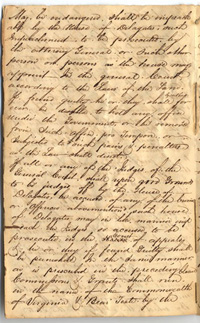 May be endangered shall be impeach-
able by the House of Delegates such
impeachment to be prosecuted by
the Attorney General or such other
person or persons as the house may
appoint in the general Court
according to the laws of the land
if found guilty he or they shall be
either forever disabled to hold any office
under the Government or be removed
from such Office pro tempore or
subjected to such pains or penalties as
the laws shall direct.
If all or any of the Judges of the
General Court shall upon good Grounds
to be judged of by the House of
Delegates be accused of any of the Crimes
or Offences abovementioned such house
of Delegates may in like manner im-
peach the Judge or accused to be
prosecuted in the Court of appeals
& he or they if found Guilty shall
be punished in the same manner
as is prescribed in the preceding clause
Commissions & Grants shall run
in the name of the Commonwealth
of Virginia & Bear Test by the